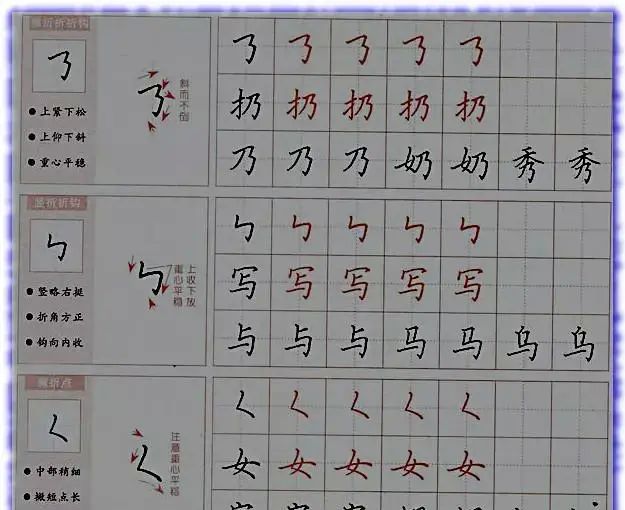 横折折折钩
㇡ ㇡ ㇡ ㇡ ㇡ ㇡
斜而不倒
● 上紧下松
● 上仰下斜
● 重心平稳
扔 扔 扔 扔 扔
乃 乃 乃 奶 奶 秀 秀
竖折折钩
㇉ ㇉ ㇉ ㇉ ㇉ ㇉
上收下放
重心平稳
● 竖略右挺
● 折角方正
● 钩向内收
写 写 写 写 写
与 与 与 马 马 乌 乌
撇折点
㇛ ㇛ ㇛ ㇛ ㇛ ㇛
注意重心平稳
● 中部稍细
● 撇短点长
女 女 女 女 女